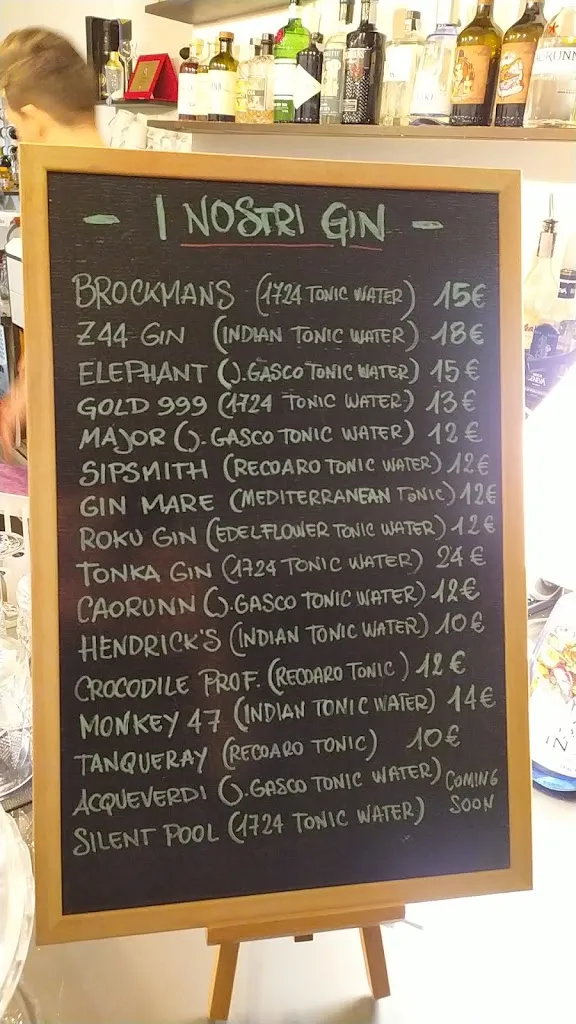 - I NOSTRI GIN -
BROCKMANS (1724 TONIC WATER) 15€
Z44 GIN (INDIAN TONIC WATER) 18€
ELEPHANT (J.GASCO TONIC WATER) 15€
GOLD 999 (1724 TONIC WATER) 13€
MAJOR (J.GASCO TONIC WATER) 12€
SIPSMITH (RECOARO TONIC WATER) 12€
GIN MARE (MEDITERRANEAN TONIC) 12€
ROKU GIN (EDELFLOWER TONIC WATER) 12€
TONKA GIN (1724 TONIC WATER) 24€
CAORUNN (J.GASCO TONIC WATER) 12€
HENDRICK'S (INDIAN TONIC WATER) 10€
CROCODILE PROF. (RECOARO TONIC) 12€
MONKEY 47 (INDIAN TONIC WATER) 14€
TANQUERAY (RECOARO TONIC) 10€
ACQUEVERDI (J.GASCO TONIC WATER) COMING
SILENT POOL (1724 TONIC WATER) SOON